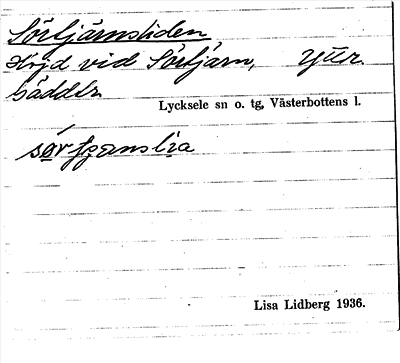 Sörtjärnsliden
Höjd vid Sörtjärn, Ytter
bäddlr
Lycksele sn o. tg, Västerbottens l.
sørtjernslia
Lisa Lidberg 1936.